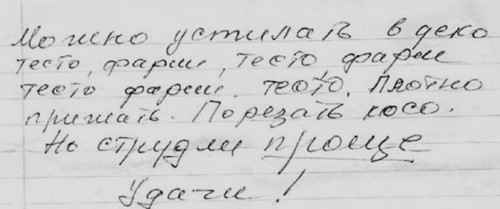 Можно устилать в деко
тесто, фарш, тесто фарш
тесто фарш. тесто. Плотно
прижать. Порезать косо.
Но струдли проще
Удачи!